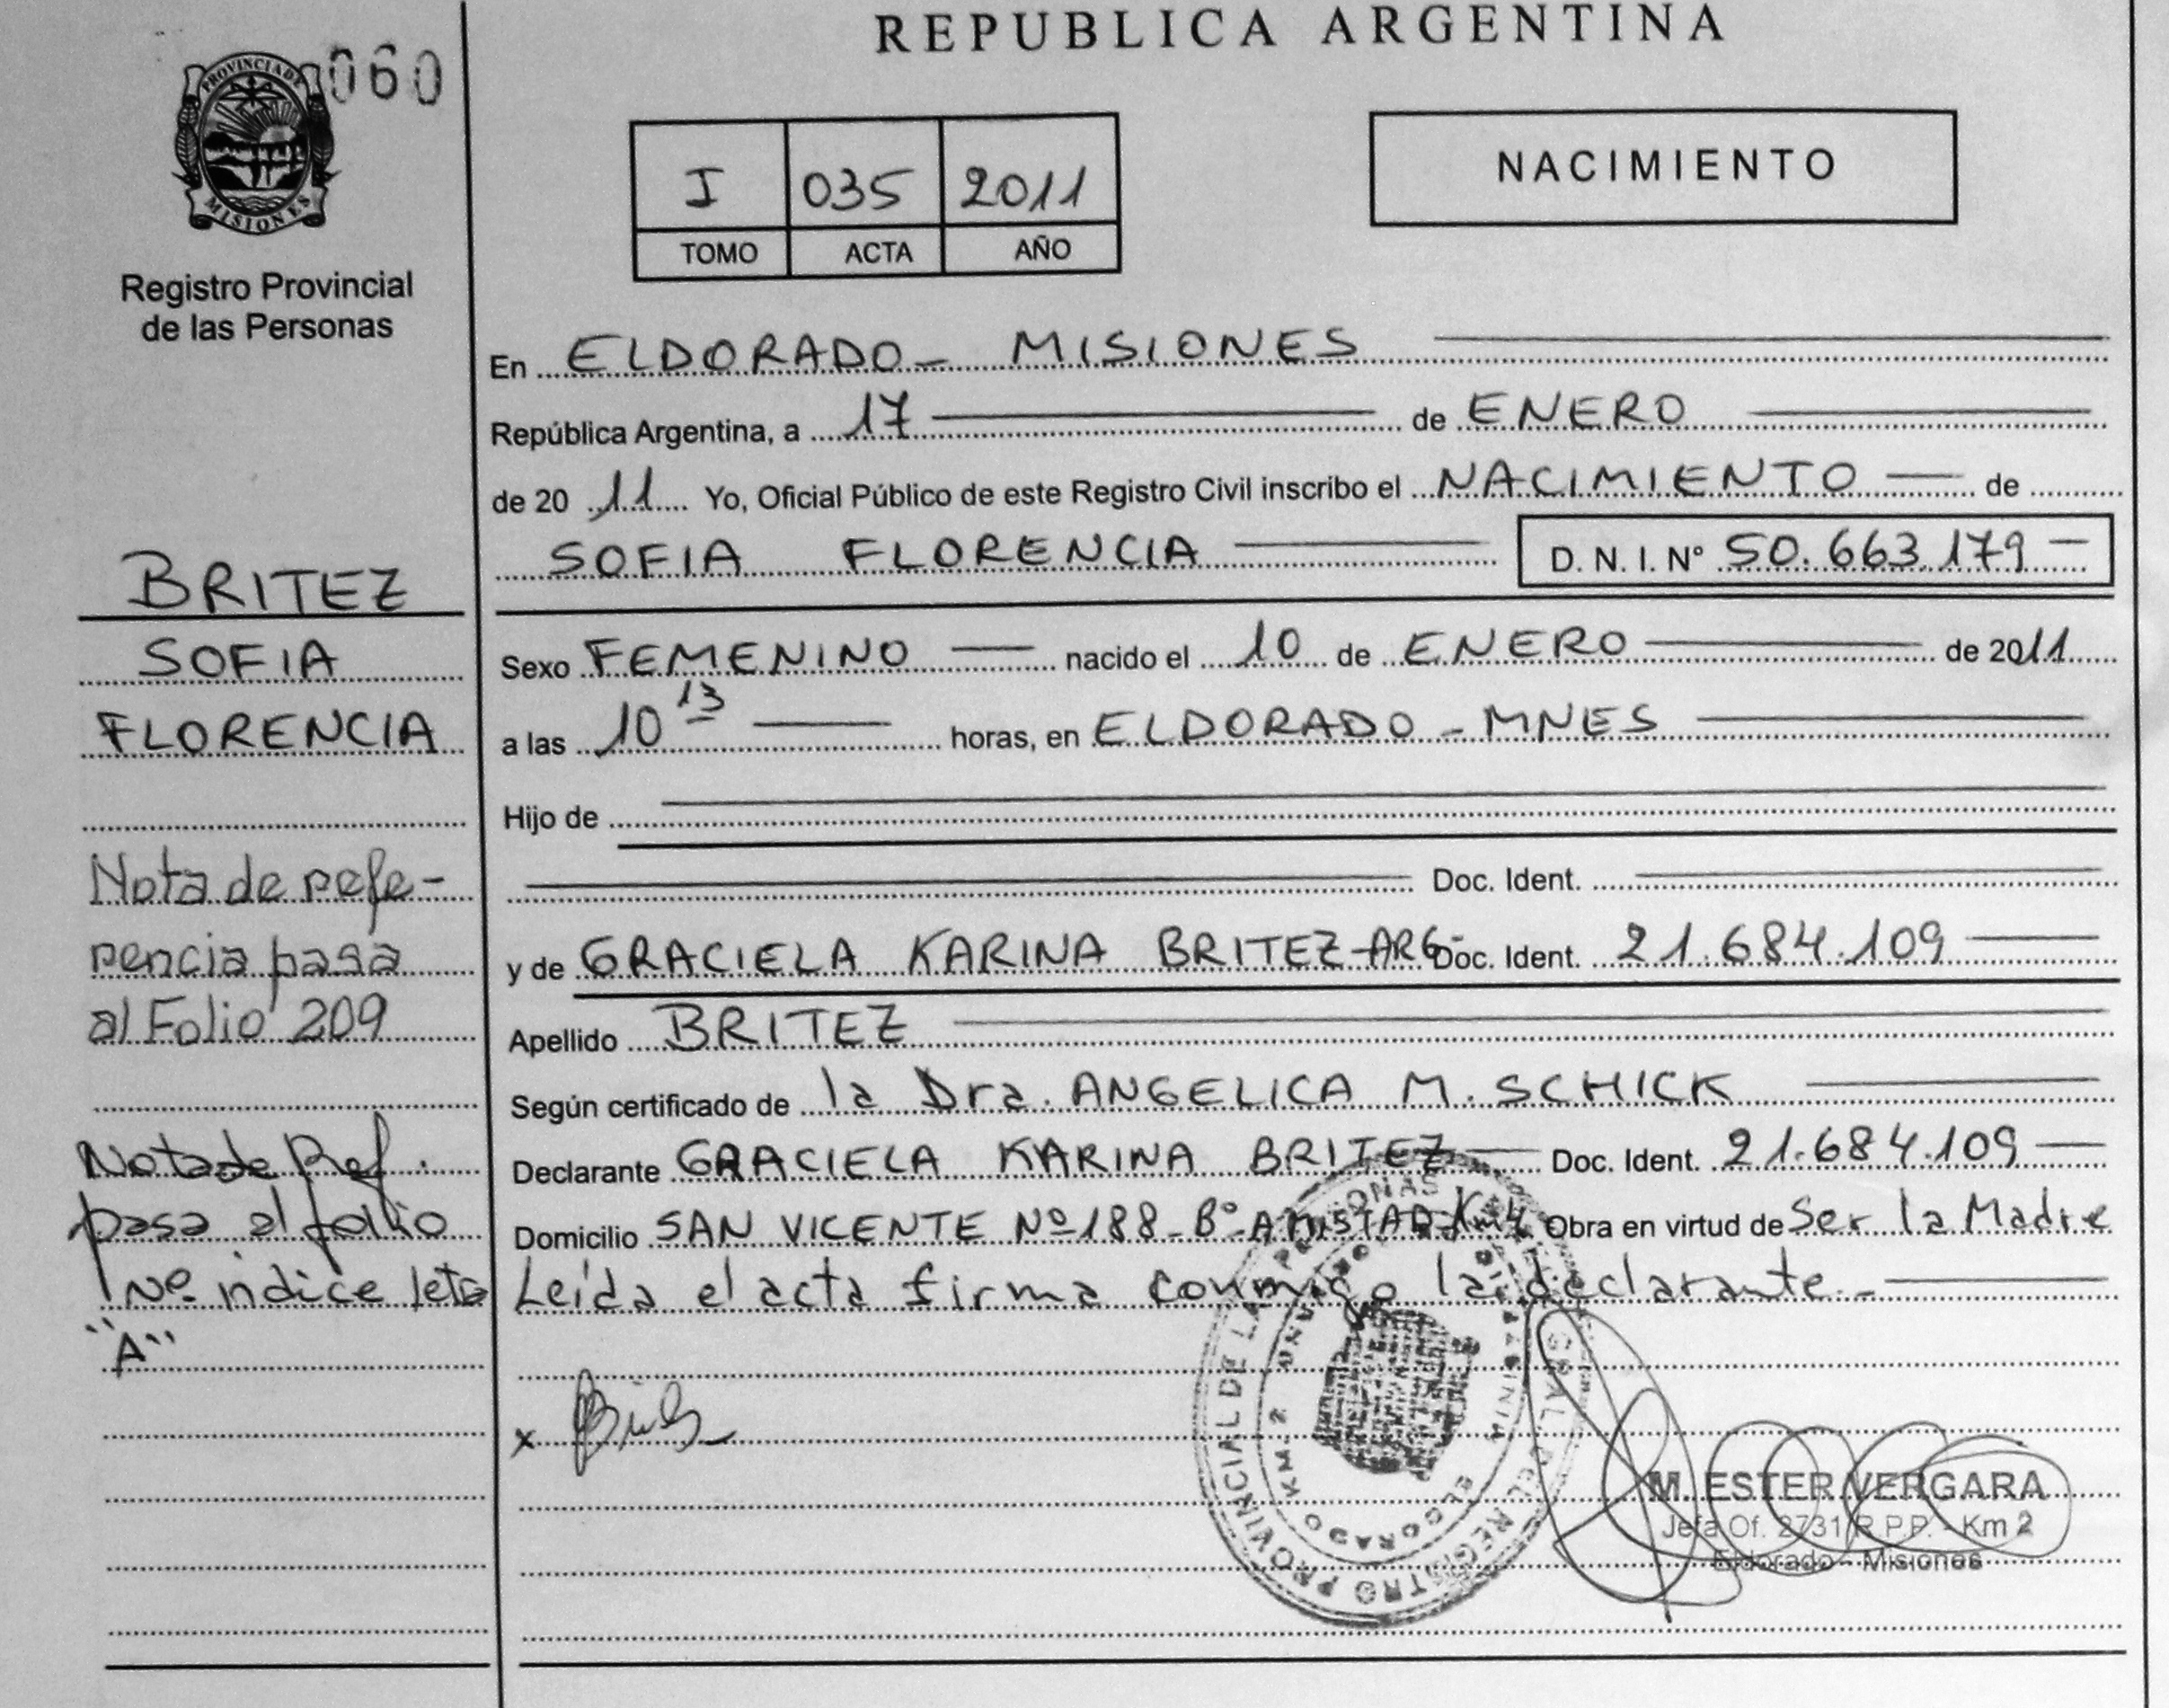 REPUBLICA ARGENTINA
060
PROVINCIA DE
MISIONES
Registro Provincial
de las Personas
I 035 2011
TOMO ACTA AÑO
NACIMIENTO
En ELDORADO - MISIONES
República Argentina, a 17 de ENERO
de 20 11 Yo, Oficial Público de este Registro Civil inscribo el NACIMIENTO de
SOFIA FLORENCIA D. N. I. Nº 50.663.179
Sexo FEMENINO nacido el 10 de ENERO de 2011
a las 10 13 horas, en ELDORADO - MNES
Hijo de
Doc. Ident.
y de GRACIELA KARINA BRITEZ-ARG- Doc. Ident. 21.684.109
Apellido BRITEZ
Según certificado de la Dra. ANGELICA M. SCHICK
Declarante GRACIELA KARINA BRITEZ Doc. Ident. 21.684.109
Domicilio SAN VICENTE Nº 188 - Bº AMISTAD-Km4 Obra en virtud de Ser la Madre
Leída el acta firma conmigo la declarante.-
BRITEZ
SOFIA
FLORENCIA
Nota de refe-
rencia pasa
al Folio 209
Nota de Ref.
pasa al folio
Nº indice letra
"A"
x
REGISTRO PROVINCIAL DE LAS PERSONAS
ELDORADO KM. 2
M. ESTER VERGARA
Jefa Of. 2731 R.P.P. - Km 2
Eldorado - Misiones